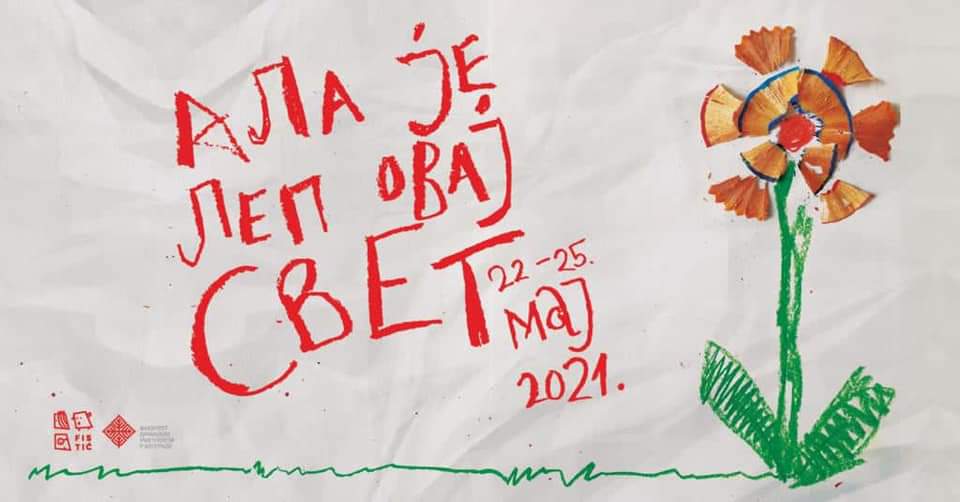 АЛА ЈЕ
ЛЕП ОВАЈ
СВЕТ
22-25.
мај
2021.
FIS
TIC